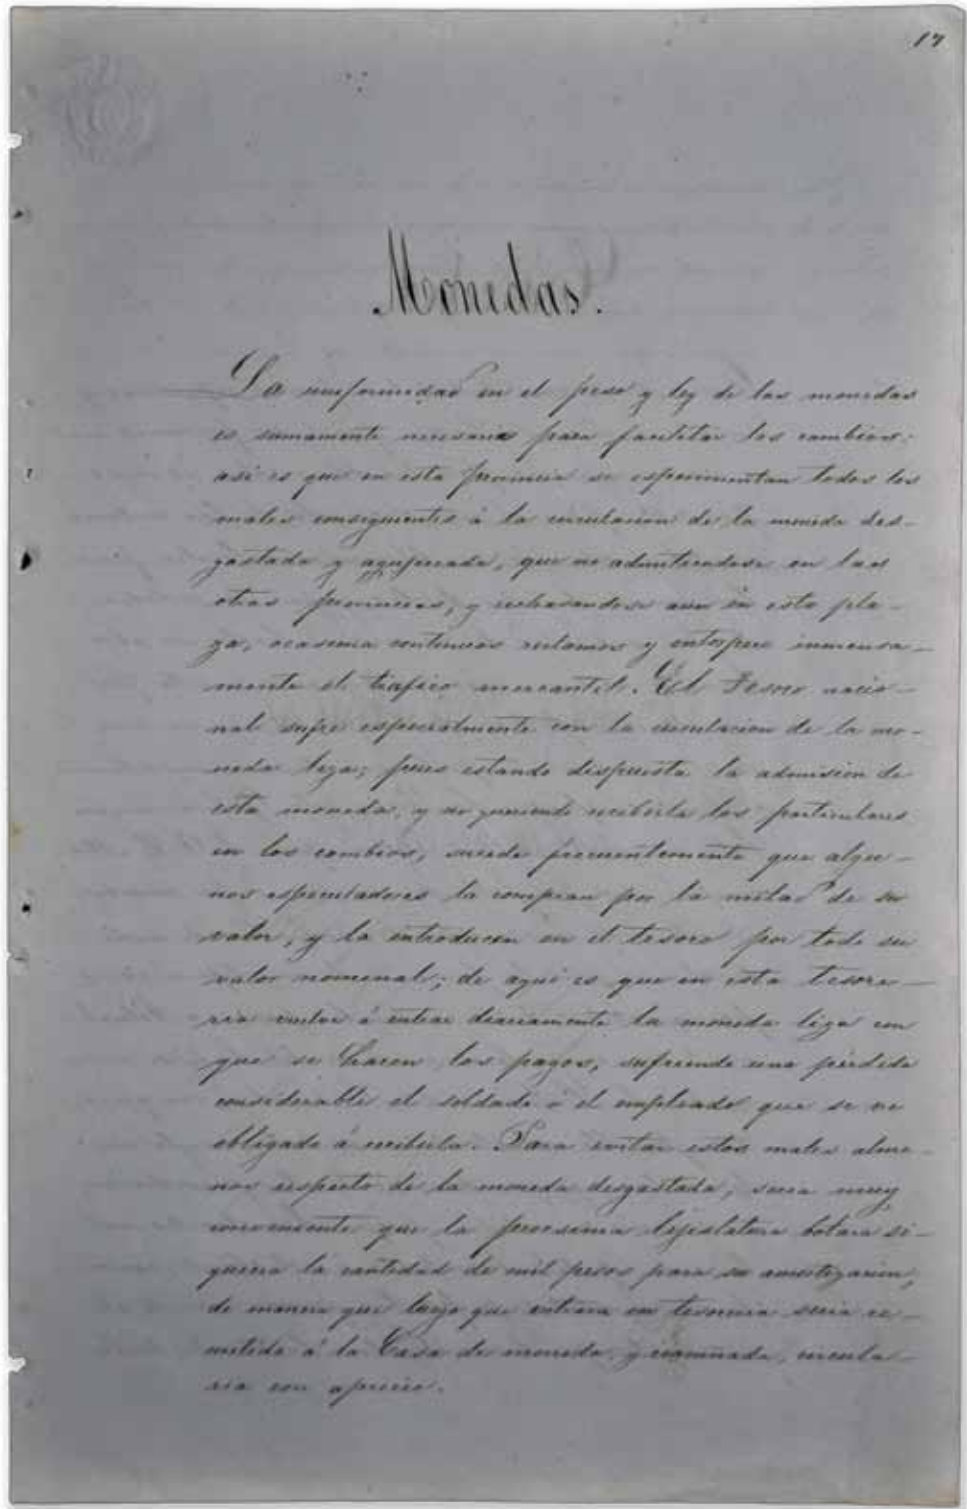 17
Monedas.
La uniformidad en el peso y ley de las monedas
es sumamente necesaria para facilitar los cambios:
asi es que en esta provincia se esperimentan todos los
males consiguientes á la circulacion de la moneda des-
gastada y agujereada, que no admitiendose en las
otras provincias, y rechasandose aun en esta pla-
za, ocasiona continuos reclamos y entorpece inmensa-
mente el trafico mercantil. El Tesoro nacio-
nal sufre especialmente con la circulacion de la mo-
neda liza; pues estando dispuesta la admision de
esta moneda, y no queriendo recibirla los particulares
en los cambios, sucede frecuentemente que algu-
nos especuladores la compran por la mitad de su
valor, y la introducen en el tesoro por todo su
valor nominal; de aqui es que en esta tesore-
ria vuelve á entrar diariamente la moneda liza con
que se hacen los pagos, sufriendo una pérdida
considerable el soldado ó el empleado que se ve
obligado á recibirla. Para evitar estos males alme-
nos respecto de la moneda desgastada, seria muy
conveniente que la procsima lejislatura botara si-
quiera la cantidad de mil pesos para su amortizacion,
de manera que luego que entrara en tesoreria seria re-
mitida á la Casa de moneda, y cuñada, circula-
ria con aprecio.